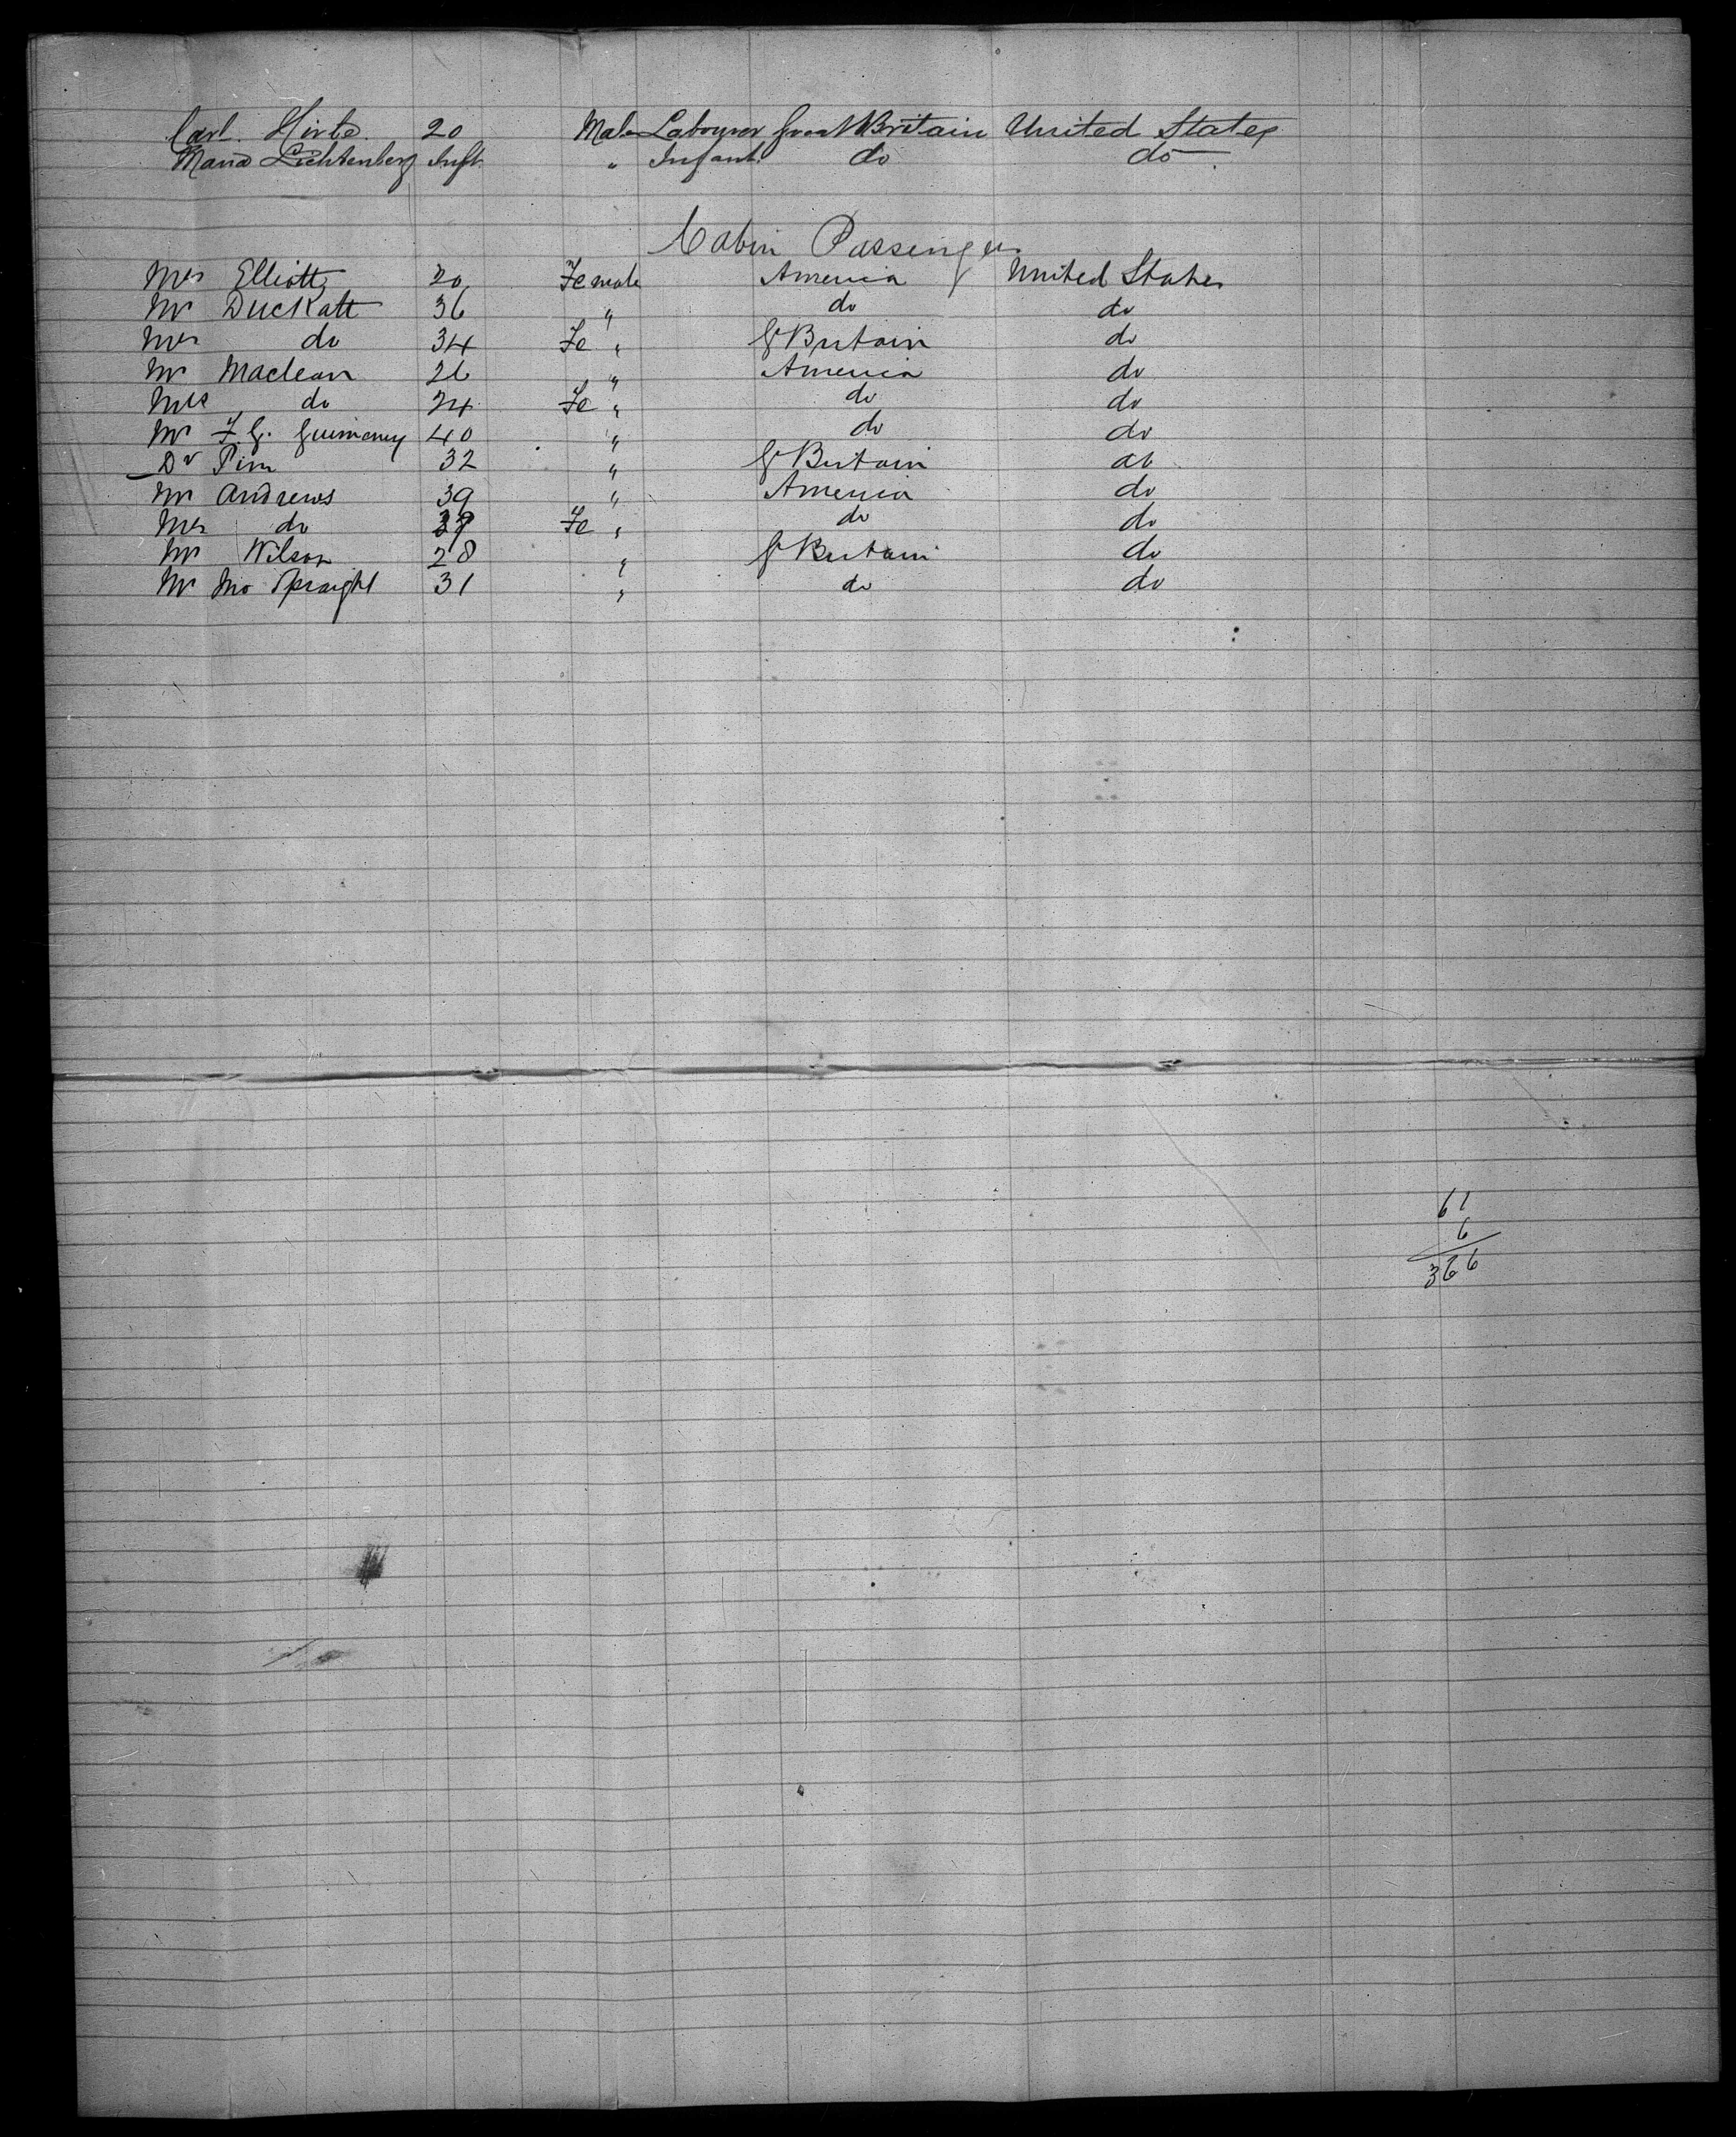 Carl Hirte 20 Male Labourer Great Britain United States
Maria Lichtenberg Inft " Infant do do
Cabin Passengers
Mrs Elliott 20 Female America United States
Mr Duckatt 36 " do do
Mrs do 34 Fe " Gt Britain do
Mr Maclean 26 " America do
Mrs do 24 Fe " do do
Mr F. G. 40 " do do
Dr Pim 32 " Gt Britain do
Mr Andrews 39 " America do
Mrs do Fe " do do
Mr Wilson 28 " Gt Britain do
Mr Jno Spraight 31 " do do
61
6
366